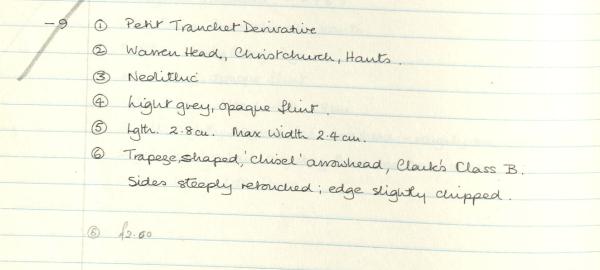 -9 ① Petit Tranchet Derivative
② Warren Head, Christchurch, Hants.
③ Neolithic
④ Light grey, opaque flint.
⑤ Lgth. 2.8cm. Max Width 2.4cm.
⑥ Trapeze, shaped, 'chisel' arrowhead, Clark's Class B.
Sides steeply retouched; edge slightly chipped.
⑥ £2.60